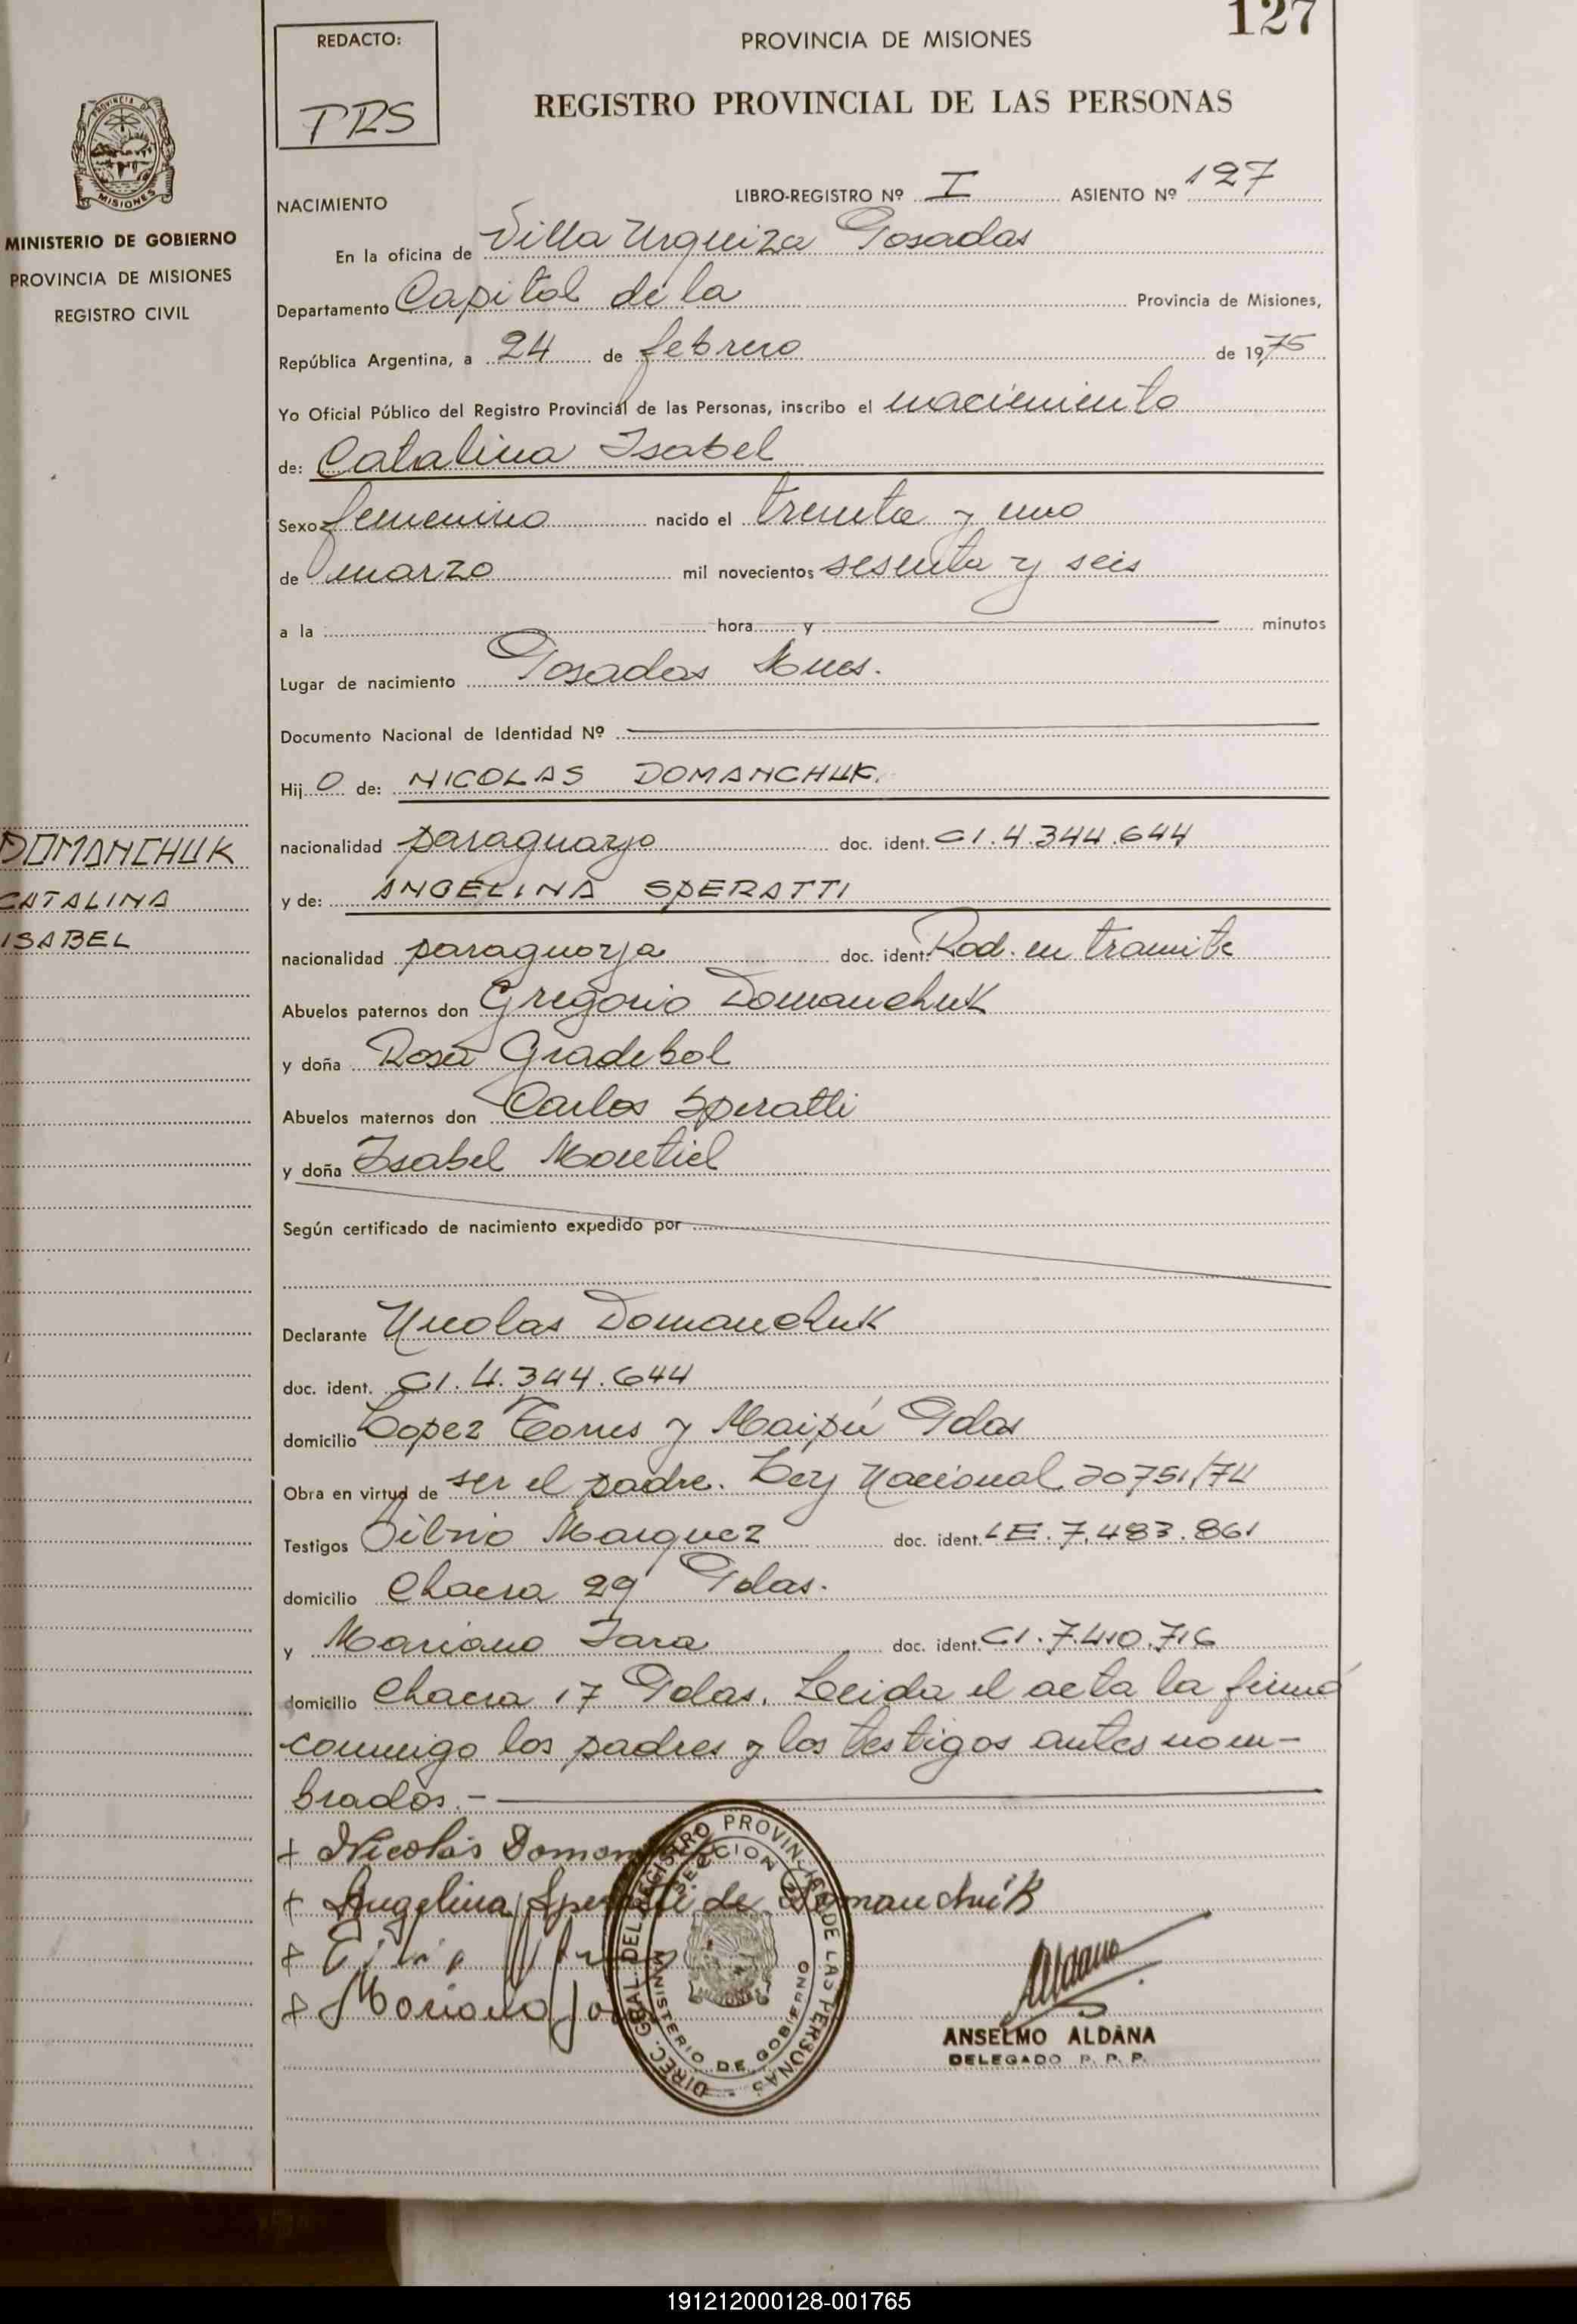 127
REDACTO:
TRS
PROVINCIA DE MISIONES
REGISTRO PROVINCIAL DE LAS PERSONAS
PROVINCIA DE
MISIONES
MINISTERIO DE GOBIERNO
PROVINCIA DE MISIONES
REGISTRO CIVIL
NACIMIENTO
LIBRO-REGISTRO Nº I ASIENTO Nº 127
En la oficina de Villa Urquiza Posadas
Departamento Capital de la Provincia de Misiones,
República Argentina, a 24 de febrero de 1975
Yo Oficial Público del Registro Provincial de las Personas, inscribo el nacimiento
de: Catalina Isabel
Sexo femenino nacido el treinta y uno
de marzo mil novecientos sesenta y seis
a la hora y minutos
Lugar de nacimiento Posadas Mnes.
Documento Nacional de Identidad Nº
Hij o de: NICOLAS DOMANCHUK.
nacionalidad paraguayo doc. ident. CI. 4.344.644
y de: ANGELINA SPERATTI
nacionalidad paraguaya doc. ident. Rad. en tramite
Abuelos paternos don Gregorio Domanchuk
y doña Rosa Gradebol
Abuelos maternos don Carlos Speratti
y doña Isabel Montiel
Según certificado de nacimiento expedido por
Declarante Nicolas Domanchuk
doc. ident. CI. 4.344.644
domicilio Lopez Torres y Maipú Pdas
Obra en virtud de ser el padre. Ley Nacional 20751/74
Testigos Silvio Marquez doc. ident. LE. 7.483.861
domicilio Chacra 29 Pdas.
y Mariano Jara doc. ident. CI. 7.410.716
domicilio Chacra 17 Pdas. Leida el acta la firma
conmigo los padres y los testigos antes nom-
brados.-
DOMANCHUK
CATALINA
ISABEL
+ Nicolás
+ Angelina Speratti de Domanchuk
+
+ Mariano
DIREC. GRAL. DEL REGISTRO PROVINCIAL DE LAS PERSONAS
SECCION
MINISTERIO DE GOBIERNO
MISIONES
Aldana
ANSELMO ALDANA
DELEGADO R. P. P.
191212000128-001765